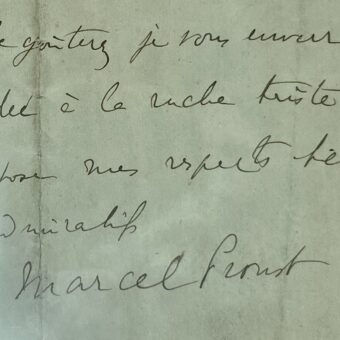 goûterez je vous enverr
à la ruche triste
mes respects
admiratifs
Marcel Proust